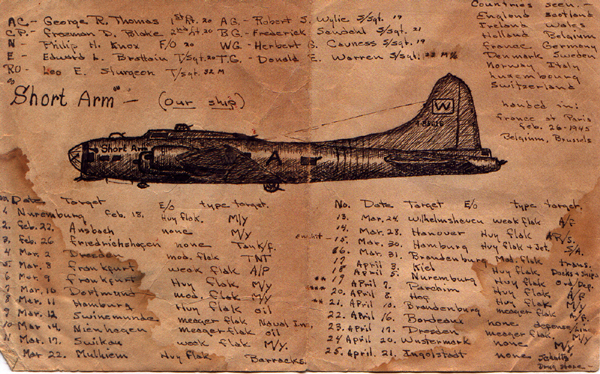 AC- George R. Thomas 1st Lt. 20
CP- Freeman D. Blake 2nd Lt. 20
N - Philip H. Knox F/O 20
E - Edward L. Brattain T/Sgt. 20
RO- Leo E. Sturgeon T/Sgt. 32 M
AG- Robert S. Wylie S/Sgt. 19
BG- Frederick S/Sgt. 21
WG- Herbert G. Cavness S/Sgt. 19
TG- Donald E. Warren S/Sgt.
Countries seen -
England Scotland
Ireland Wales
Holland Belgium
France Germany
Denmark Sweden
Norway Italy
Luxembourg
Switzerland
landed in:
France at Paris
Feb. 26-1945
Belgium, Brussels
"Short Arm" - (our ship)
Short Arm
A
W
Date Target E/O type target
Nuremburg Feb. 18. Hvy flak, M/y
2. Feb. 22. Ansbach none M/y
Feb. 26 Friedrichshagen none Tank/f.
Mar. 2 Dresden mod. flak TNT
Mar. Frankfurt weak flak A/P
Frankfurt Hvy flak, M/y
Mar. 10 Dortmund mod. flak M/y
Mar. 11. Hamburg Hvy flak oil
Mar. 12. Swinemunde meager flak Naval Ins.
Mar. 14. Nienhagen meager flak oil
Mar. 17. weak flak M/y
Mar. 22. Mulhiem Hvy flak Barracks.
No. Date Target E/O type target.
13. Mar. 24. Wilhelmshaven weak flak A/F
14. Mar. 28. Hanover Hvy flak
15. Mar. 30. Hamburg Hvy flak + Jet.
Mar. 31. Brandenburg Mod. flak
17 April Kiel Hvy flak Docks + Ships
18 April Nuremburg Hvy flak Ord Dep.
April 7. Parchim Hvy flak A/F
April 8. Hof Hvy flak M/y
21. April Brandenburg Hvy flak M/y
22. April 16. Bordeaux meager flak
23. April 17. Dresden none
24 April 20. Wustermark meager flak M/y.
25. April. 21. Ingolstadt none M/y
Drug Store -